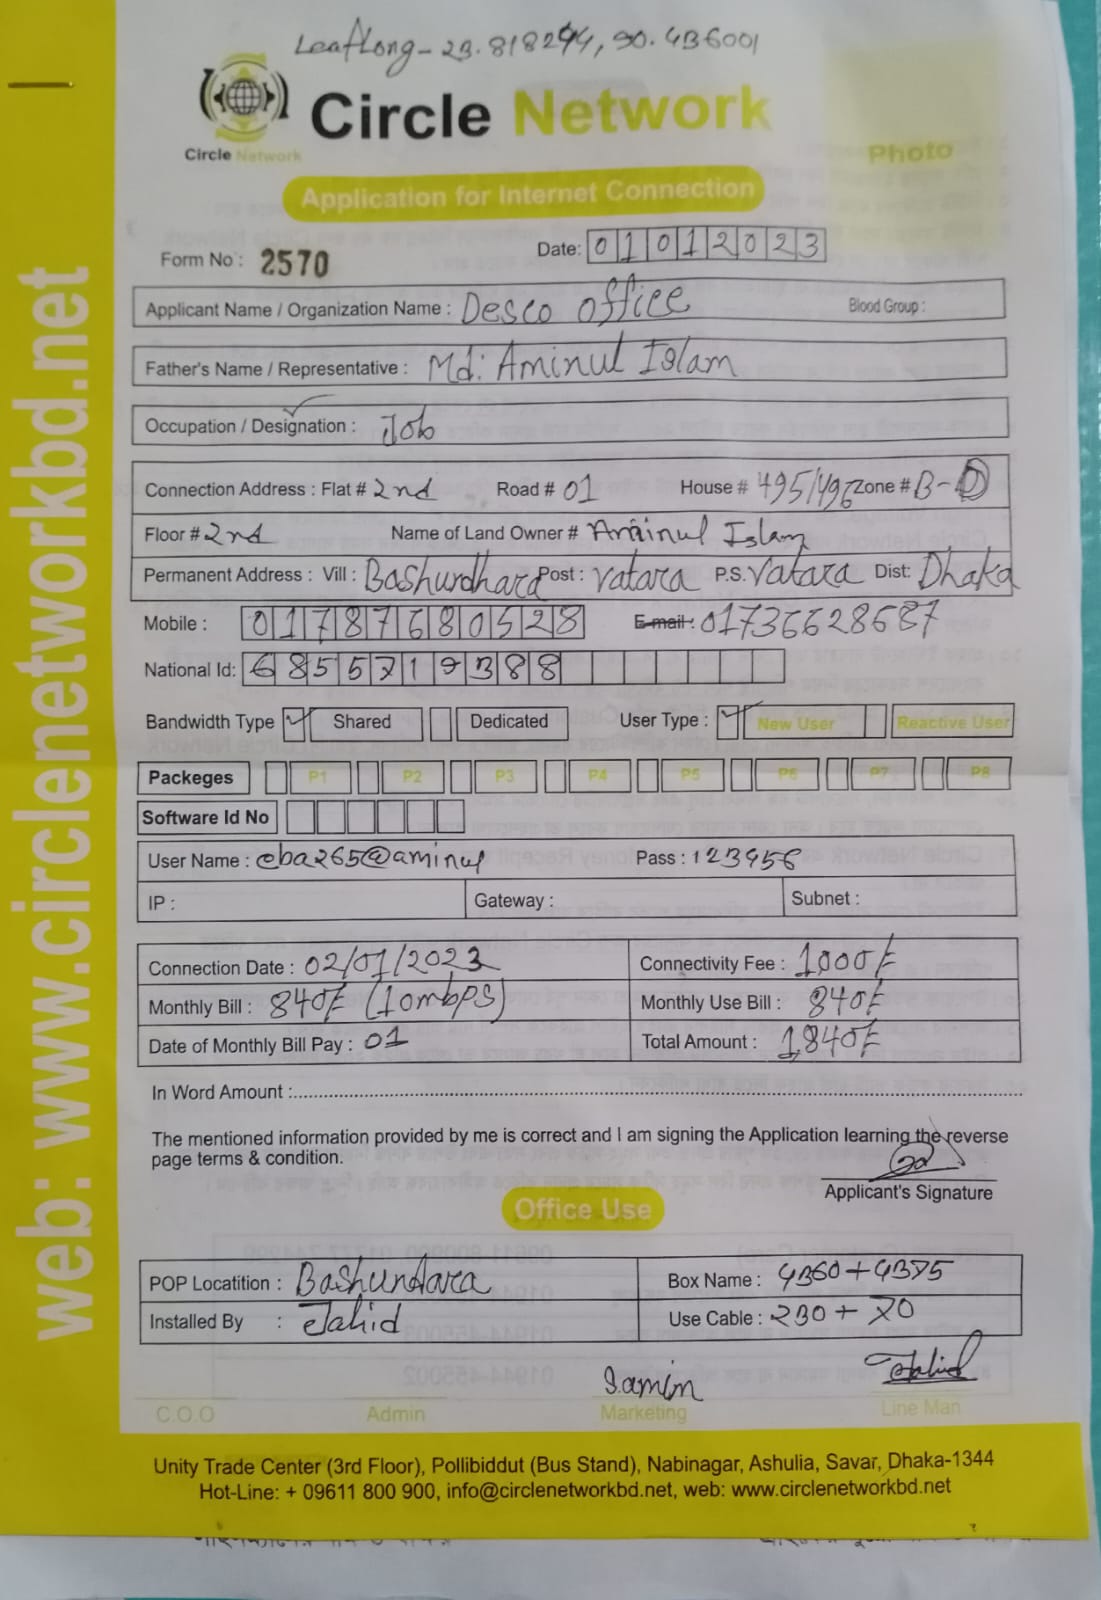 Leaflong- 23.818294, 90.436001
Circle Network
Circle Network
Photo
Application for Internet Connection
Form No : 2570
Date: 01012023
Applicant Name / Organization Name : Desco office Blood Group :
Father's Name / Representative : Md: Aminul Islam
Occupation / Designation : Job
Connection Address : Flat # 2nd Road # 01 House # 495/496 Zone # B-D
Floor # 2nd Name of Land Owner # Aminul Islam
Permanent Address : Vill : Bashundhara Post : Vatara P.S. Vatara Dist: Dhaka
Mobile : 01787680528 E-mail : 01736628687
National Id: 6855719388
Bandwidth Type Shared Dedicated User Type : New User Reactive User
Packeges P1 P2 P3 P4 P5 P6 P7 P8
Software Id No
User Name : cba265@aminul Pass : 123456
IP : Gateway : Subnet :
Connection Date : 02/01/2023 Connectivity Fee : 1000/-
Monthly Bill : 840/- (10mbps) Monthly Use Bill : 840/-
Date of Monthly Bill Pay : 01 Total Amount : 1,840/-
In Word Amount :
The mentioned information provided by me is correct and I am signing the Application learning the reverse
page terms & condition.
Applicant's Signature
Office Use
POP Locatition : Bashundara Box Name : 4360+4375
Installed By : Jahid Use Cable : 230+70
Samim Jahid
C.O.O Admin Marketing Line Man
Unity Trade Center (3rd Floor), Pollibiddut (Bus Stand), Nabinagar, Ashulia, Savar, Dhaka-1344
Hot-Line: + 09611 800 900, info@circlenetworkbd.net, web: www.circlenetworkbd.net
web: www.circlenetworkbd.net